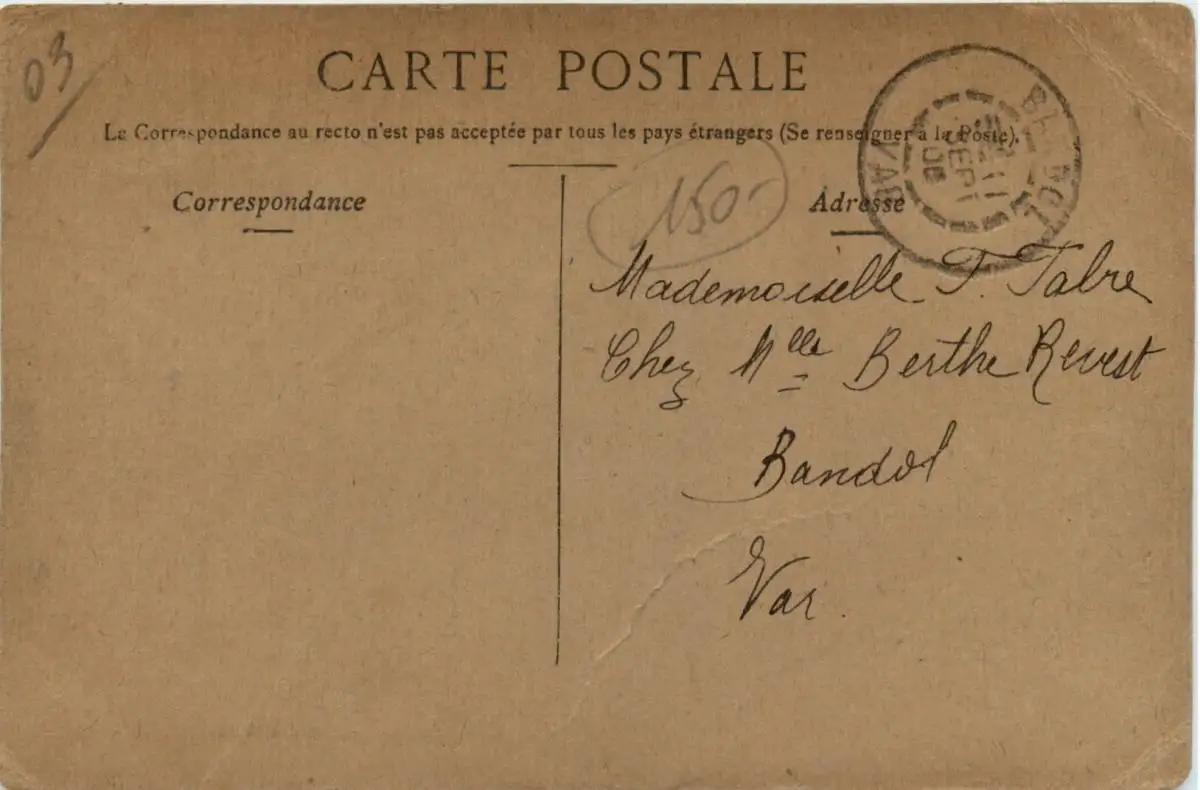 03
CARTE POSTALE
La Correspondance au recto n'est pas acceptée par tous les pays étrangers (Se renseigner à la Poste).
Correspondance
150-
Adresse
BANDOL
SEPT
VAR
Mademoiselle F. Fabre
Chez Mlle Berthe Revest
Bandol
Var.